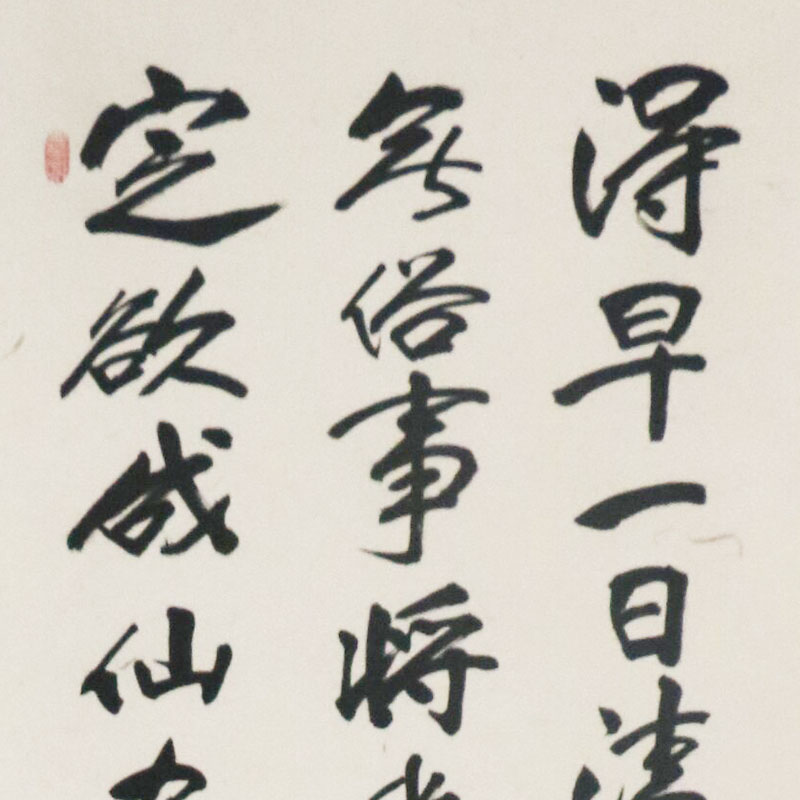 得早一日
無俗事将
定欲成仙